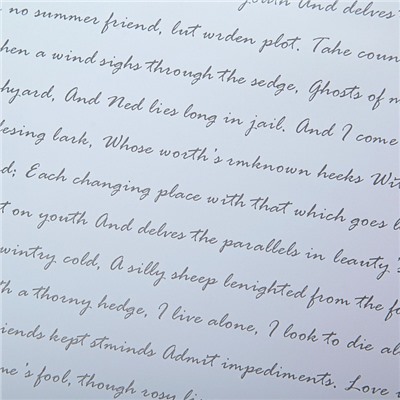 youth And delves
no summer friend, but wrden plot. Tahe coun
hen a wind sighs through the sedge, Ghosts of m
hyard, And Ned lies long in jail. And I come
lesing lark, Whose worth's rmknown heeks Wit
d; Each changing place with that which goes b
t on youth And delves the parallels in leauty's
wintry cold, A silly sheep lenighted from the fo
th a thorny hedge, I live alone, I look to die al
iends kept stminds Admit impediments. Love
me's fool, though rosy li